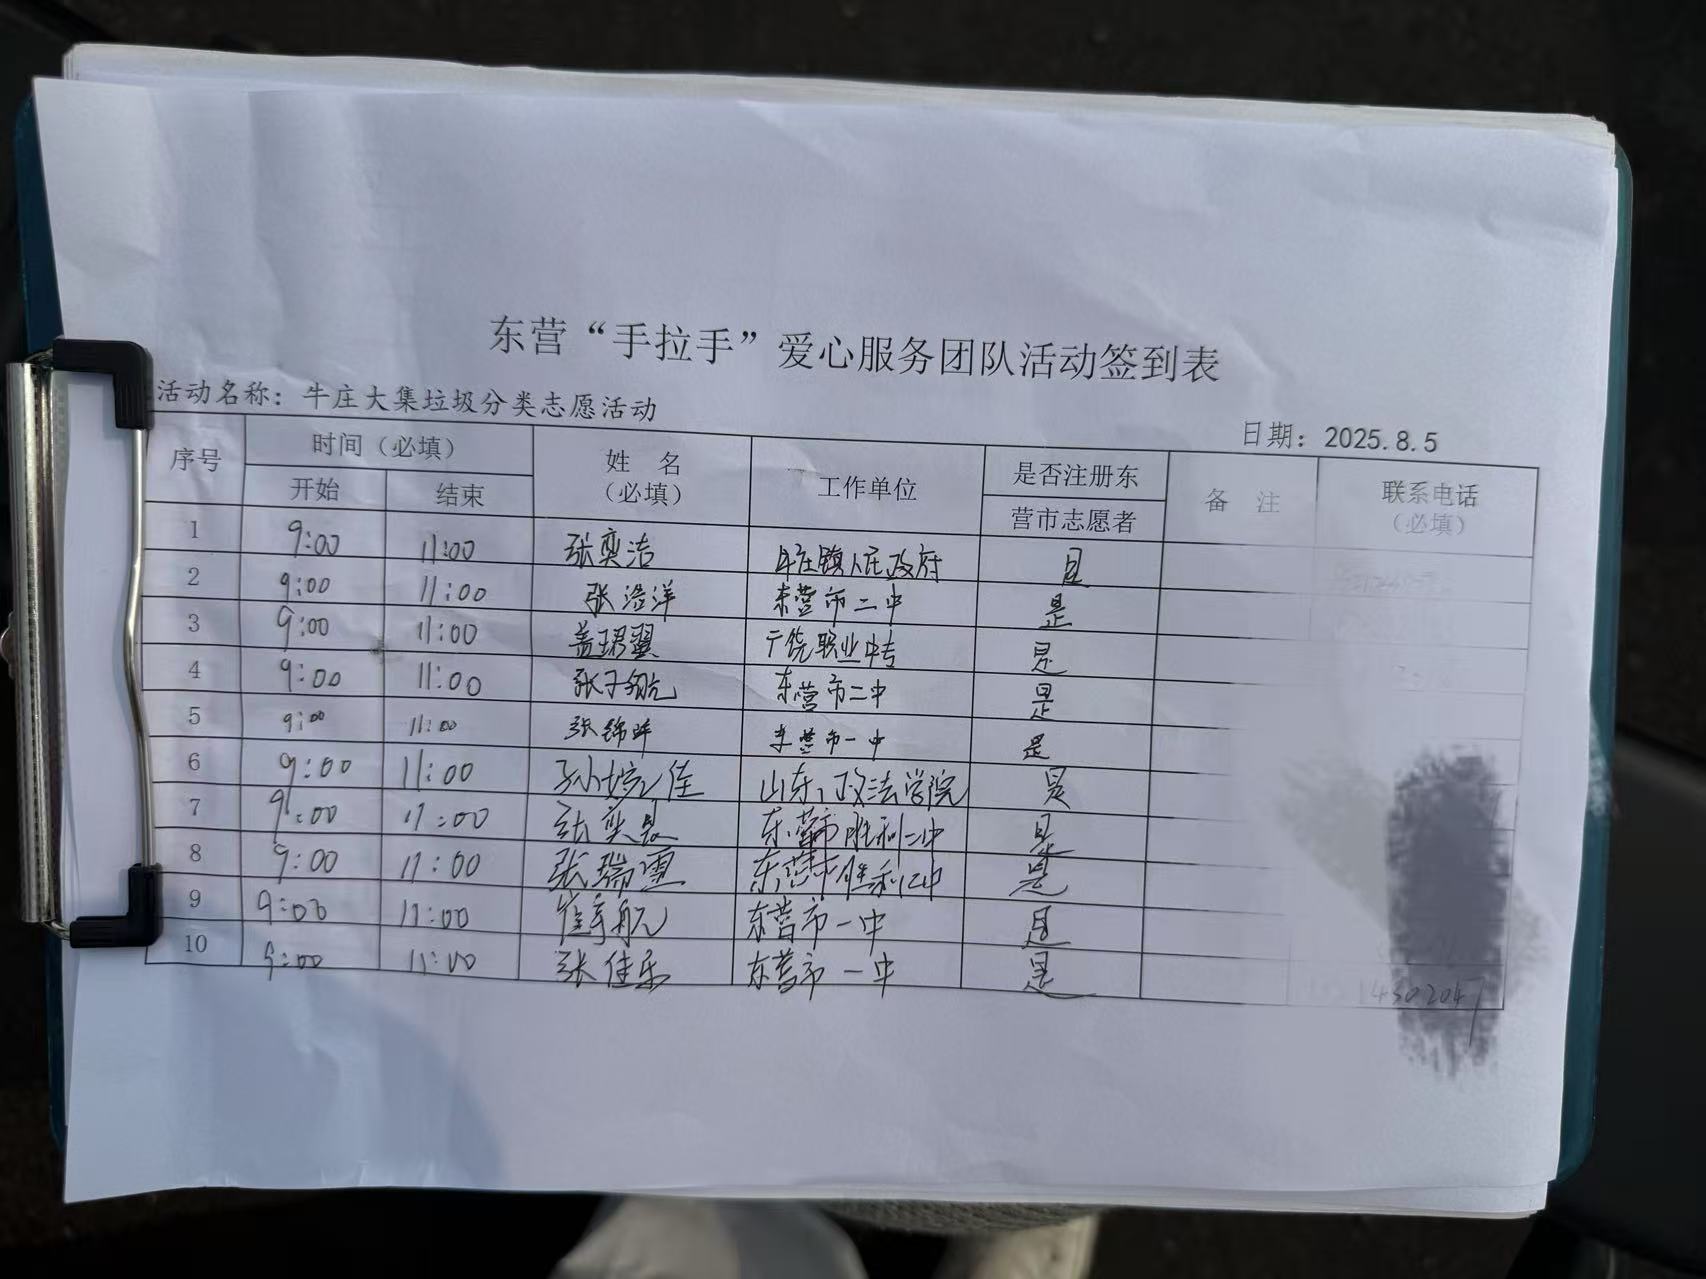 东营“手拉手”爱心服务团队活动签到表
活动名称：牛庄大集垃圾分类志愿活动
日期：2025.8.5
序号 时间（必填） 姓 名（必填） 工作单位 是否注册东营市志愿者 备 注 联系电话（必填）
开始 结束
1 9:00 11:00 张奕洁 牛庄镇人民政府 是
2 9:00 11:00 张浍洋 东营市二中 是
3 9:00 11:00 盖珺翼 广饶职业中专 是
4 9:00 11:00 张子翔 东营市二中 是
5 9:00 11:00 张锦 东营市一中 是
6 9:00 11:00 孙婉佳 山东政法学院 是
7 9:00 11:00 张奕 东营市胜利二中 是
8 9:00 11:00 张瑞雪 东营市胜利二中 是
9 9:00 11:00 崔航 东营市一中 是
10 9:00 11:00 张佳乐 东营市一中 是